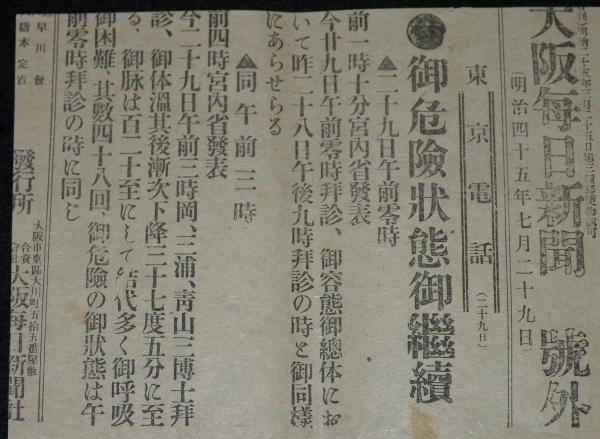 大阪每日新聞 號外
(明治四十五年七月二十九日)
東京電話(二十九日)
御危險狀態御繼續
▲二十九日午前零時
前一時十分宮內省發表
今廿九日午前零時拜診、御容態御總體にお
いて昨二十八日午後九時拜診の時と御同樣
にあらせらる
▲同午前三時
前四時宮內省發表
今二十九日午前三時岡、三浦、靑山三博士拜
診、御体溫其後漸次下降三十七度五分に至
る、御脉は百二十至にして結代多く御呼吸
御困難、其數四十八回、御危險の御狀態は午
前零時拜診の時に同じ
早川督
橋本定吉
發行所
大阪市東區大川町五拾五番屋敷
合資會社 大阪每日新聞社